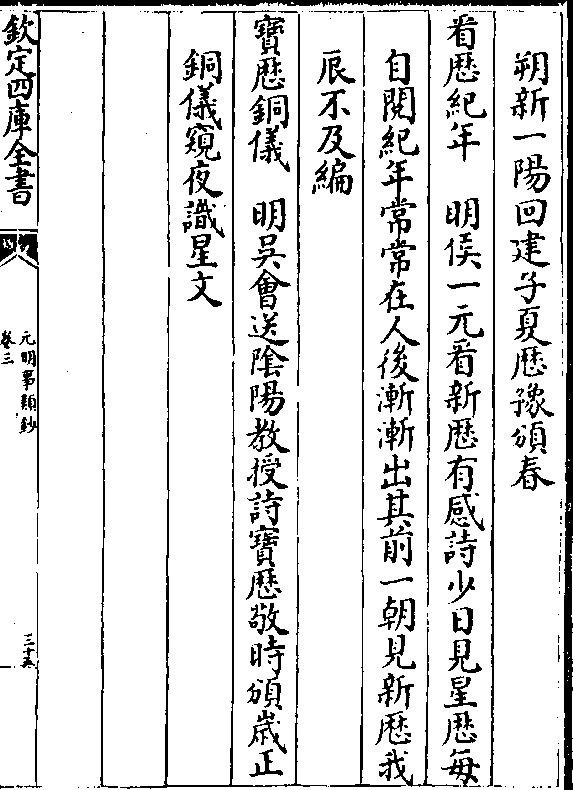 朔新一陽回建子夏歴豫頒春
看歴紀年　明侯一元看新歴有感詩少日見星歴每
自閱紀年常常在人後漸漸出其前一朝見新歴我
辰不及編
寳歴銅儀　明吳會送陰陽教授詩寳歴敬時頒嵗正
銅儀窺夜識星文
欽定四庫全書
元明事類鈔
卷三
三十五